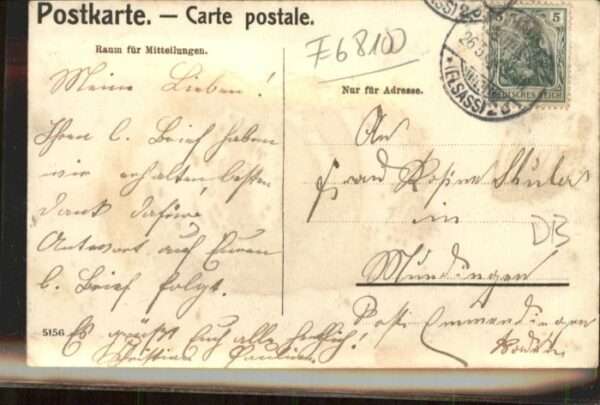 Postkarte. — Carte postale.
Raum für Mitteilungen.
F68100
Nur für Adresse.
5 5
DEUTSCHES REICH
(ELSASS)
26.5
*(ELSASS) 2
Meine Lieben!
Ihren l. Brief haben
wir erhalten, besten
Dank dafür,
Antwort auf Euren
l. Brief folgt.
Es grüßt Euch alle herzlich!
An
Frau Rosine Schuler
in
Mundingen
Post Emmendingen
Baden
DB
5156